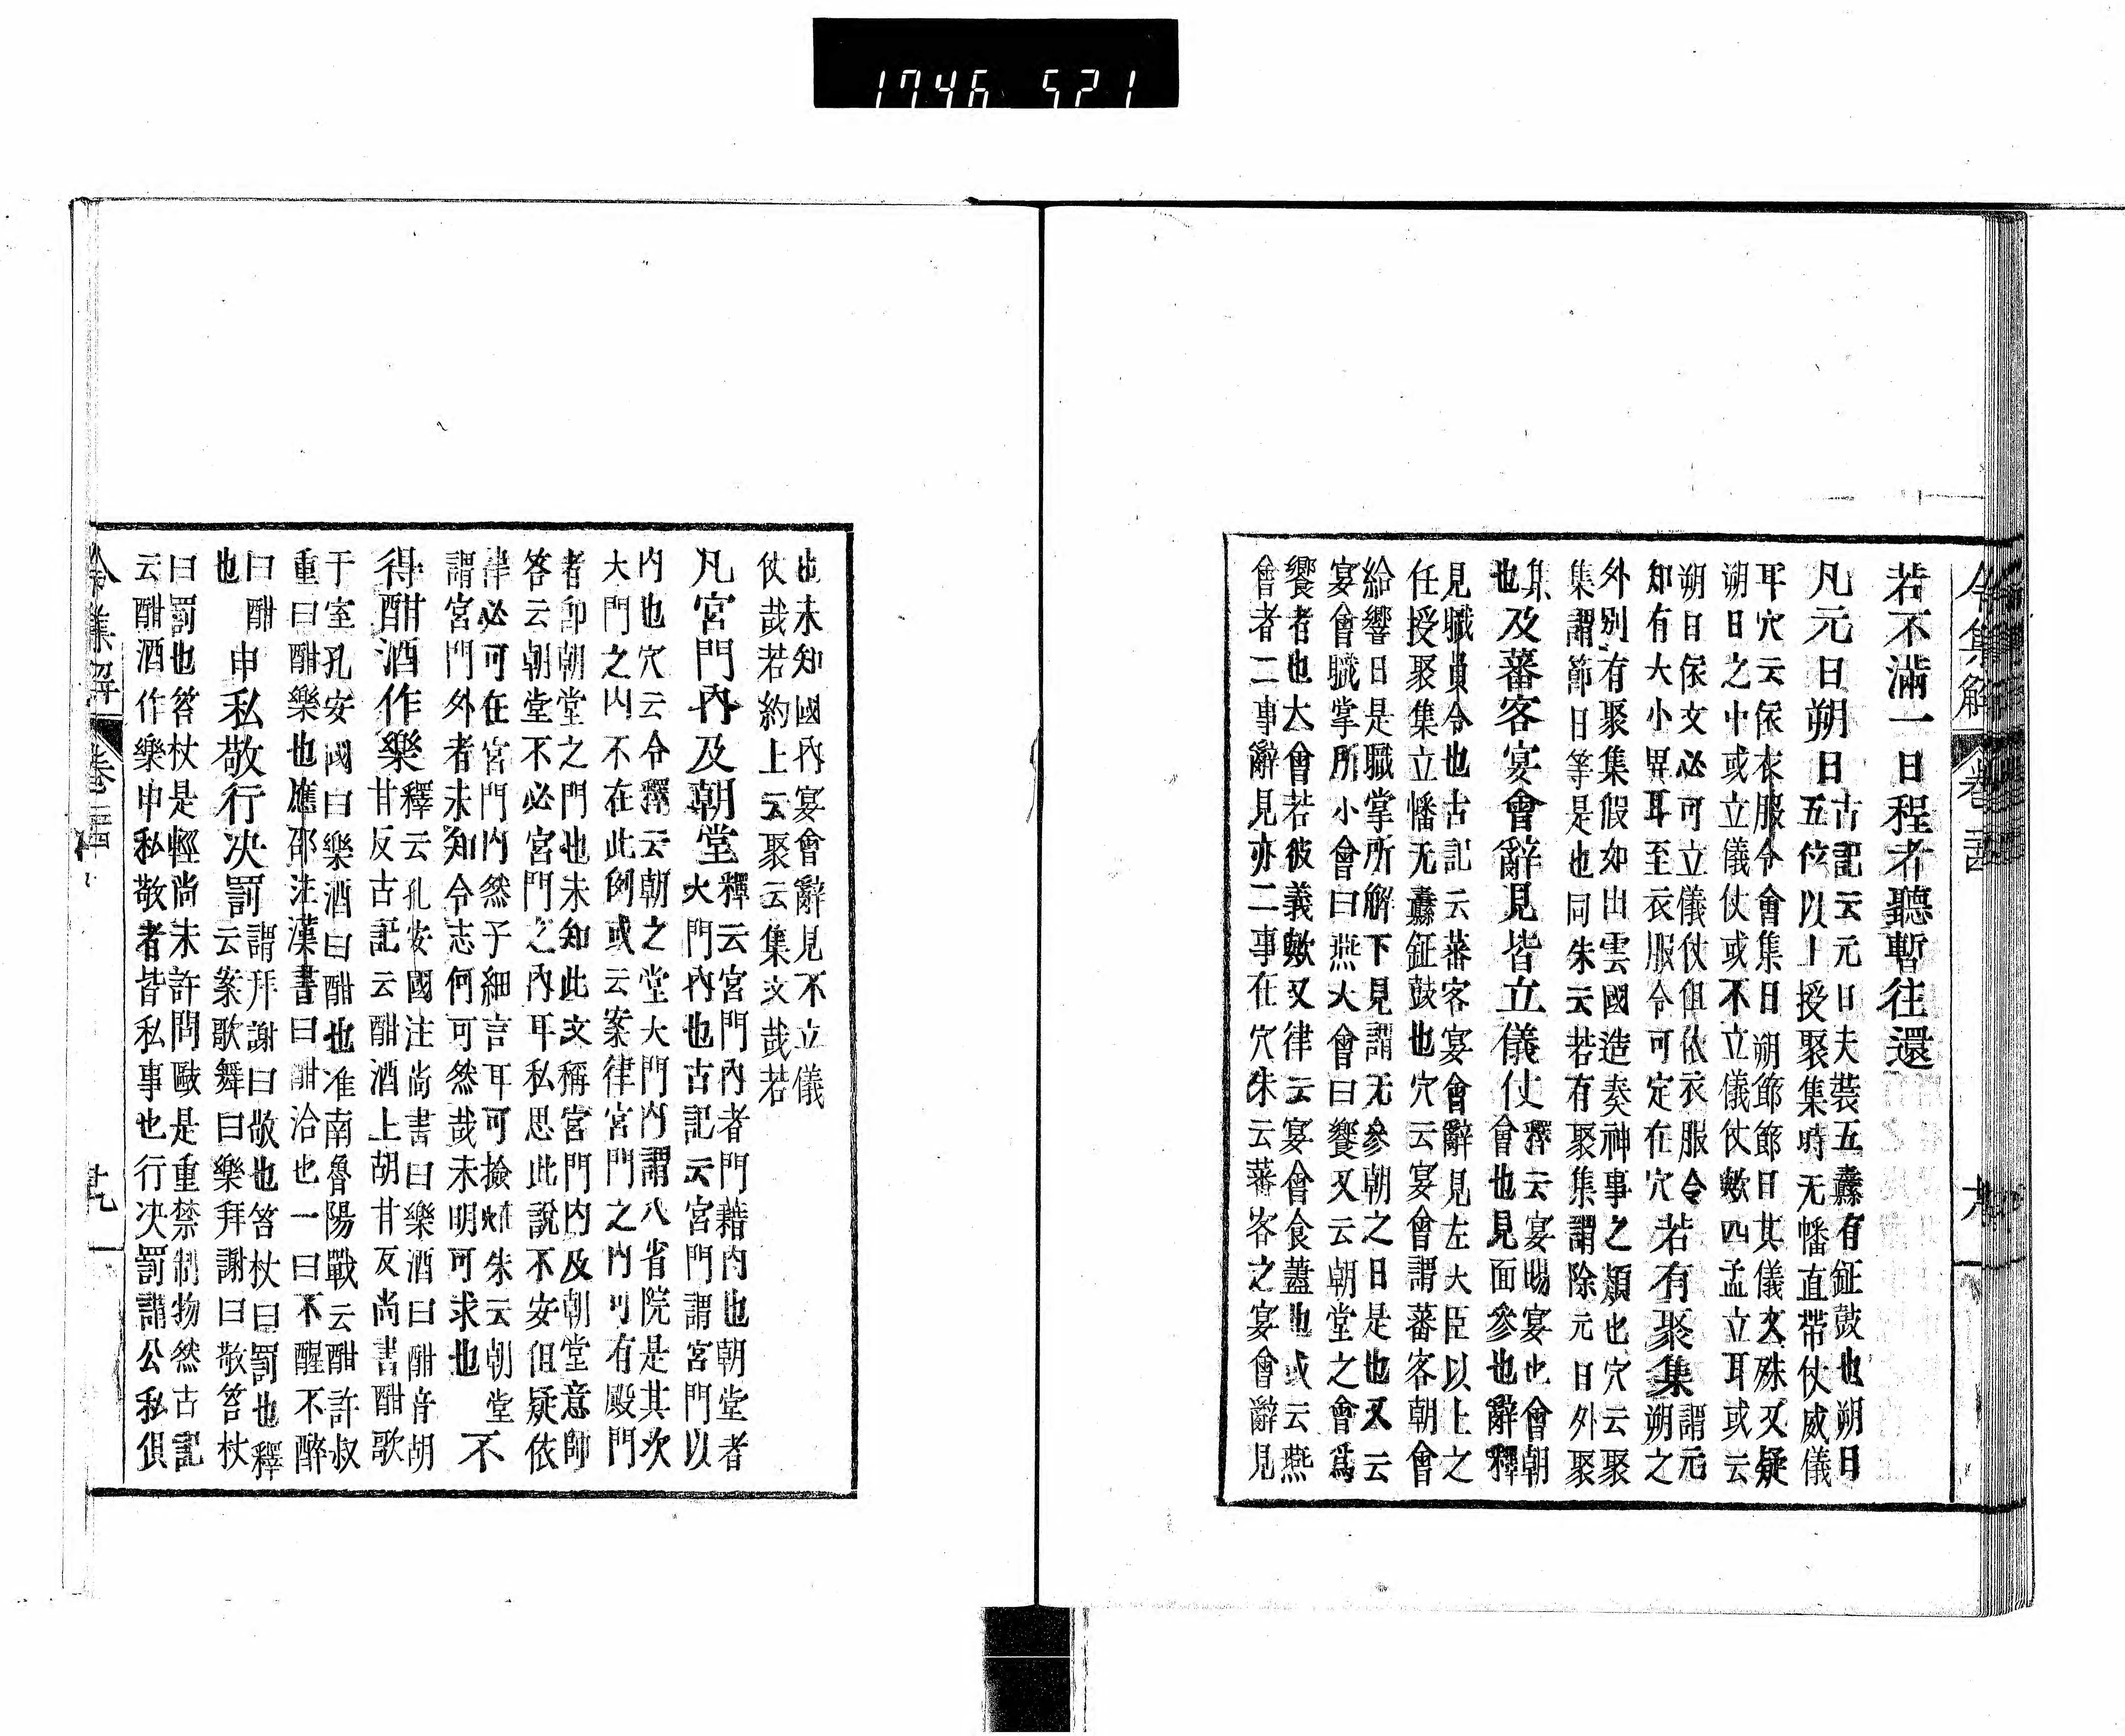 1746 521
令集解 卷
若不滿一日程者聽暫往還
凡元日朔日
古記云元日夫裝五纛有鉦鼓也朔日
五位以上授聚集時无幡直帶仗威儀
耳穴云依衣服令會集日朔節節日其儀文殊又疑
朔日之中或立儀仗或不立儀仗歟四孟立耳或云
朔日依文必可立儀仗但依衣服令
知有大小異耳至衣服令可定在穴
若有聚集
謂元
朔之
外別有聚集假如出雲國造奏神事之類也穴云聚
集謂節日等是也同朱云若有聚集謂除元日外聚
集
也
及蕃客宴會辭見皆立儀仗
釋云宴賜宴也會朝
會也見面參也辭釋
見職員令也古記云蕃客宴會辭見左大臣以上之
任授聚集立幡无纛鉦鼓也穴云宴會謂蕃客朝會
給響日是職掌所解下見謂无參朝之日是也又云
宴會職掌所小會曰燕大會曰饗又云朝堂之會爲
饗者也大會若彼義歟又律云宴會食蓋也或云燕
會者二事辭見亦二事在穴朱云蕃客之宴會辭見
也未知國內宴會辭見不立儀
仗哉若約上云聚云集文哉若
凡宮門內及朝堂
釋云宮門內者門籍內也朝堂者
大門內也古記云宮門謂宮門以
內也穴云令釋云朝之堂大門內謂八省院是其次
大門之內不在此例或云案律宮門之內可有殿門
者卽朝堂之門也未知此文稱宮門內及朝堂意師
答云朝堂不必宮門之內耳私思此說不安但疑依
律必可在宮門內然子細言耳可撿 朱云朝堂
謂宮門外者未知令志何可然哉未明可求也
不
得酣酒作樂
釋云孔安國注尚書曰樂酒曰酣音胡
甘反古記云酣酒上胡甘反尚書酣歌
于室孔安國曰樂酒曰酣也准南魯陽戰云酣許叔
重曰酣樂也應邵注漢書曰酣洽也一曰不醒不醉
曰酣
也
申私敬行決罰
謂拜謝曰敬也笞杖曰罰也釋
云案歌舞曰樂拜謝曰敬笞杖
曰罰也答杖是輕尚未許問毆是重禁制物然古記
云酣酒作樂申私敬者皆私事也行決罰謂公私俱
令集解 卷二十四 十九